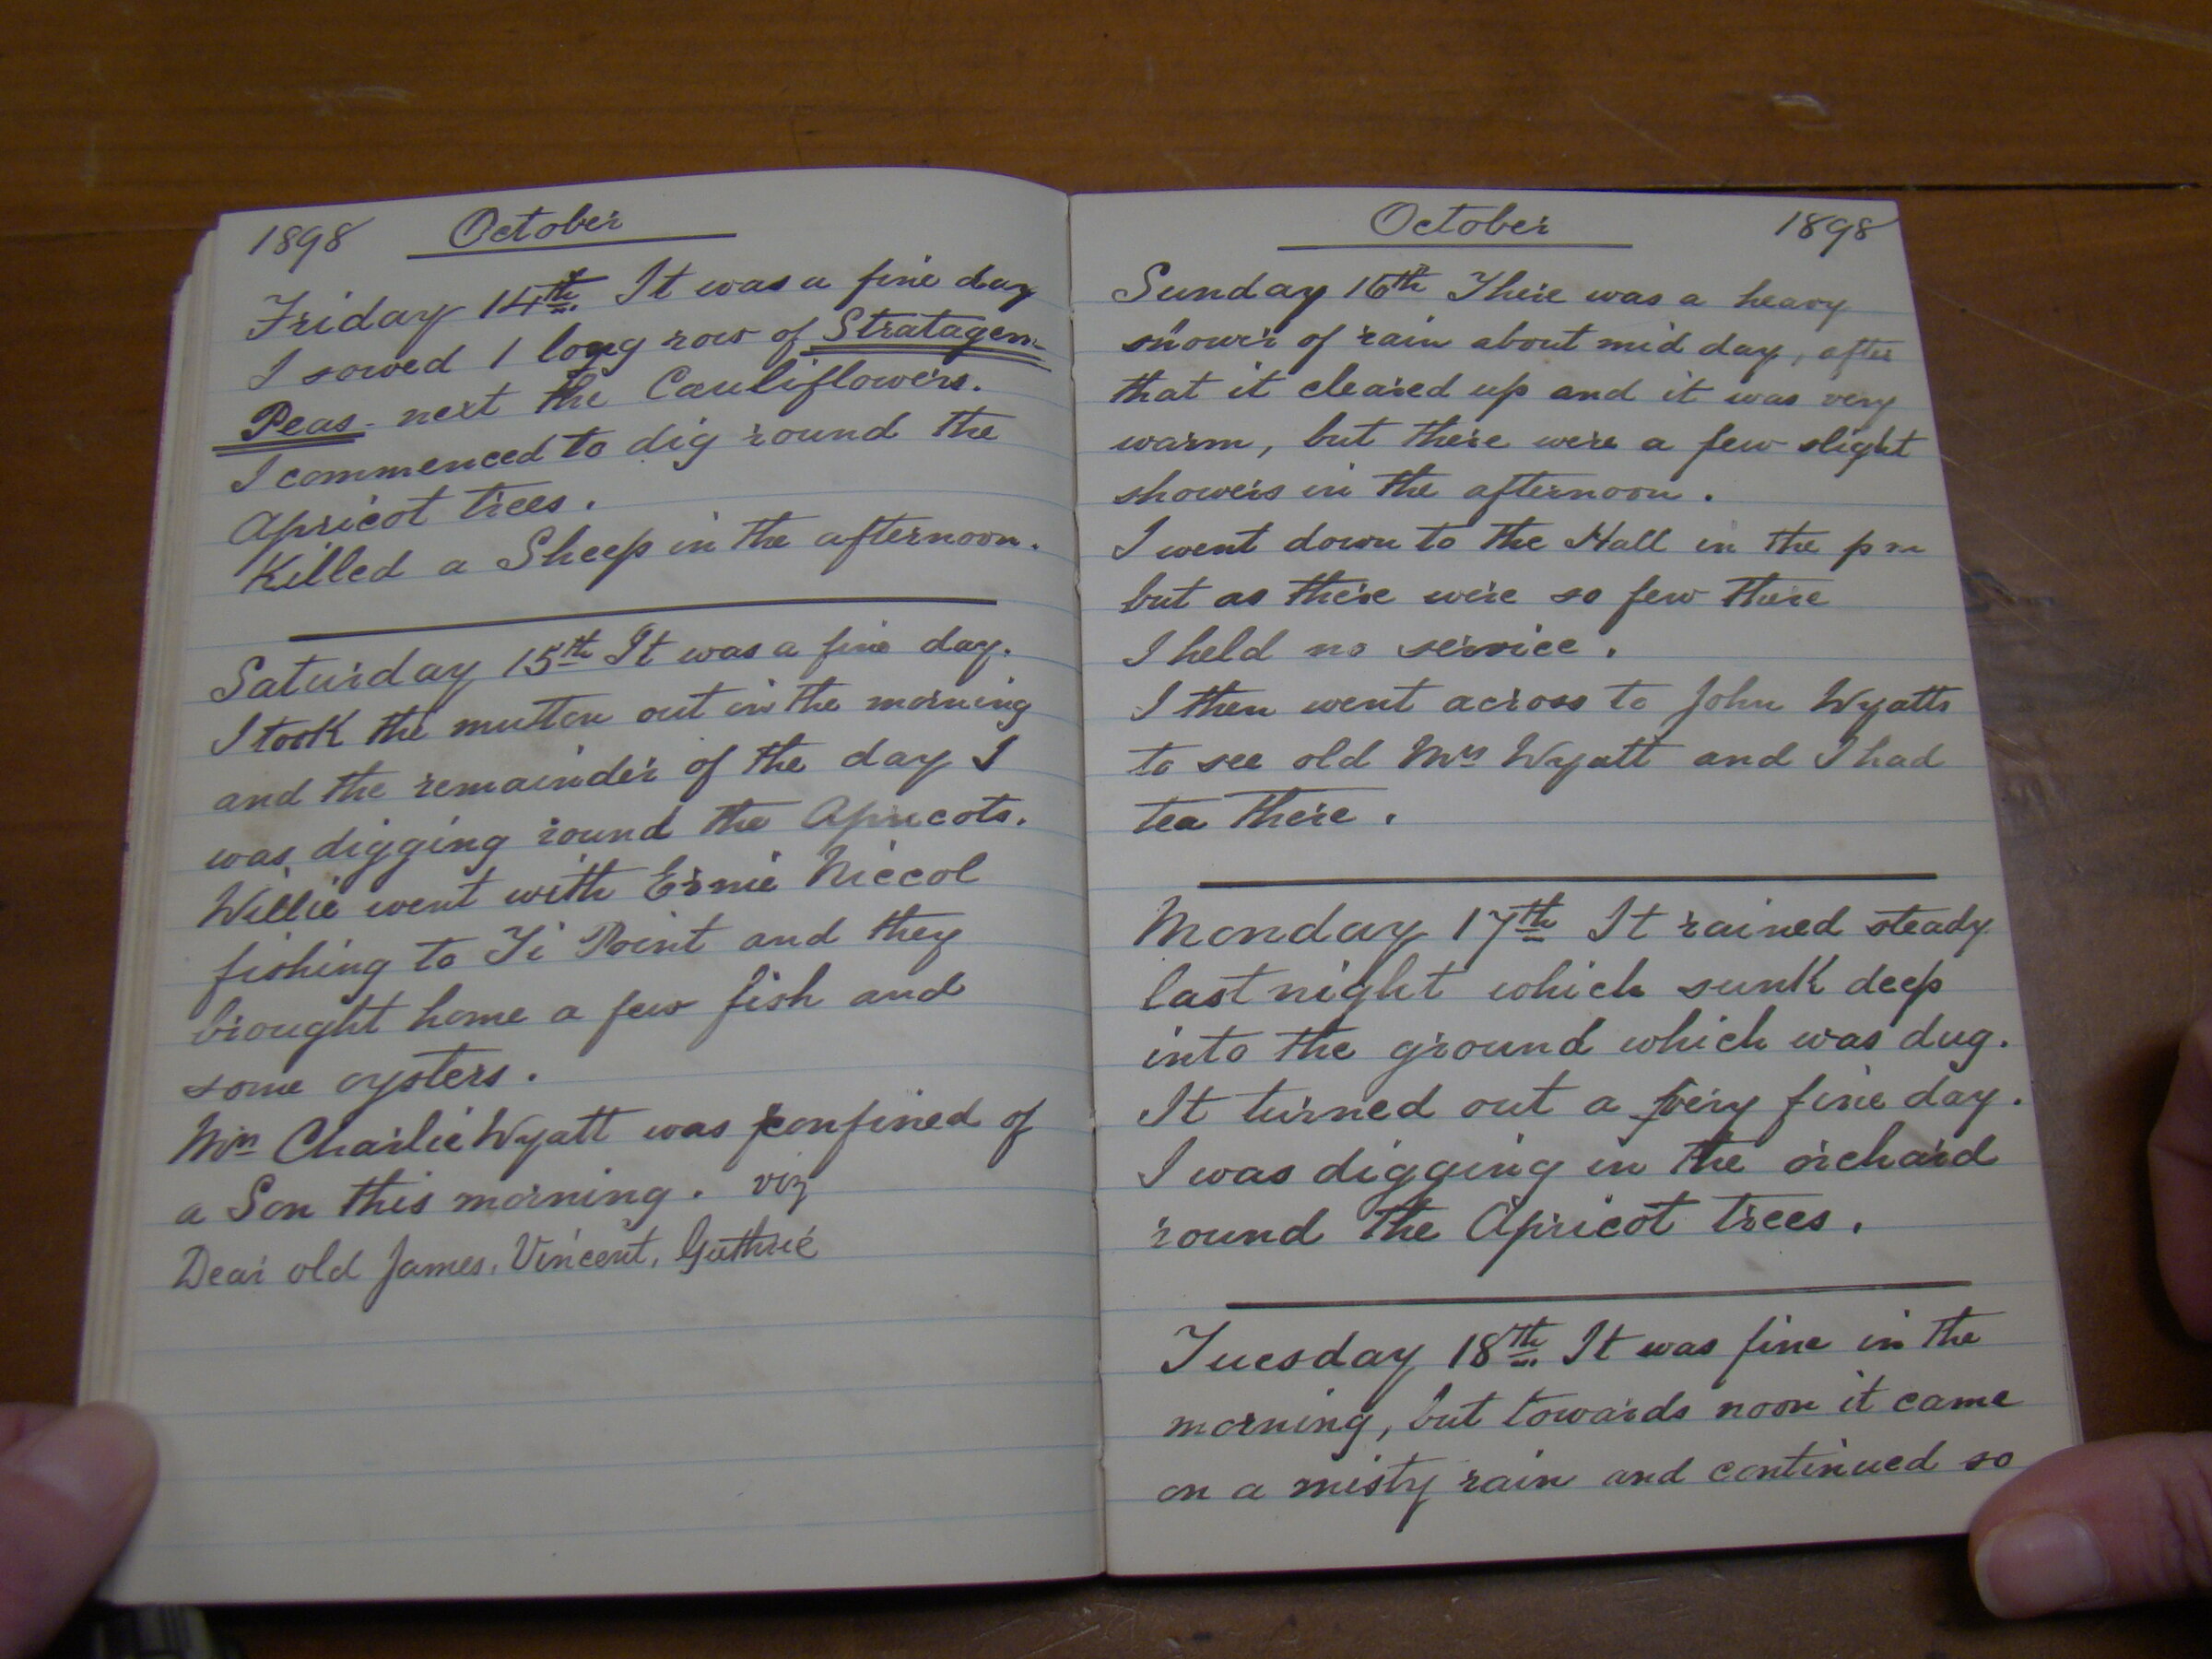 1898 October
Friday 14th. It was a fine day
I sowed 1 long row of Stratagem
Peas - next the Cauliflowers.
I commenced to dig round the
Apricot trees.
Killed a Sheep in the afternoon.
Saturday 15th It was a fine day.
I took the mutton out in the morning
and the remainder of the day I
was digging round the Apricots.
Willie went with Ernie Niccol
fishing to Ti Point and they
brought home a few fish and
some oysters.
Mrs Charlie Wyatt was confined of
a Son this morning. viz
Dear old James, Vincent, Guthrie
October 1898
Sunday 16th There was a heavy
shower of rain about mid day, after
that it cleared up and it was very
warm, but there were a few slight
showers in the afternoon.
I went down to the Hall in the pm
but as there were so few there
I held no service.
I then went across to John Wyatts
to see old Mrs Wyatt and I had
tea there.
Monday 17th It rained steady
last night which sunk deep
into the ground which was dug.
It turned out a very fine day.
I was digging in the orchard
round the Apricot trees.
Tuesday 18th. It was fine in the
morning, but towards noon it came
on a misty rain and continued so